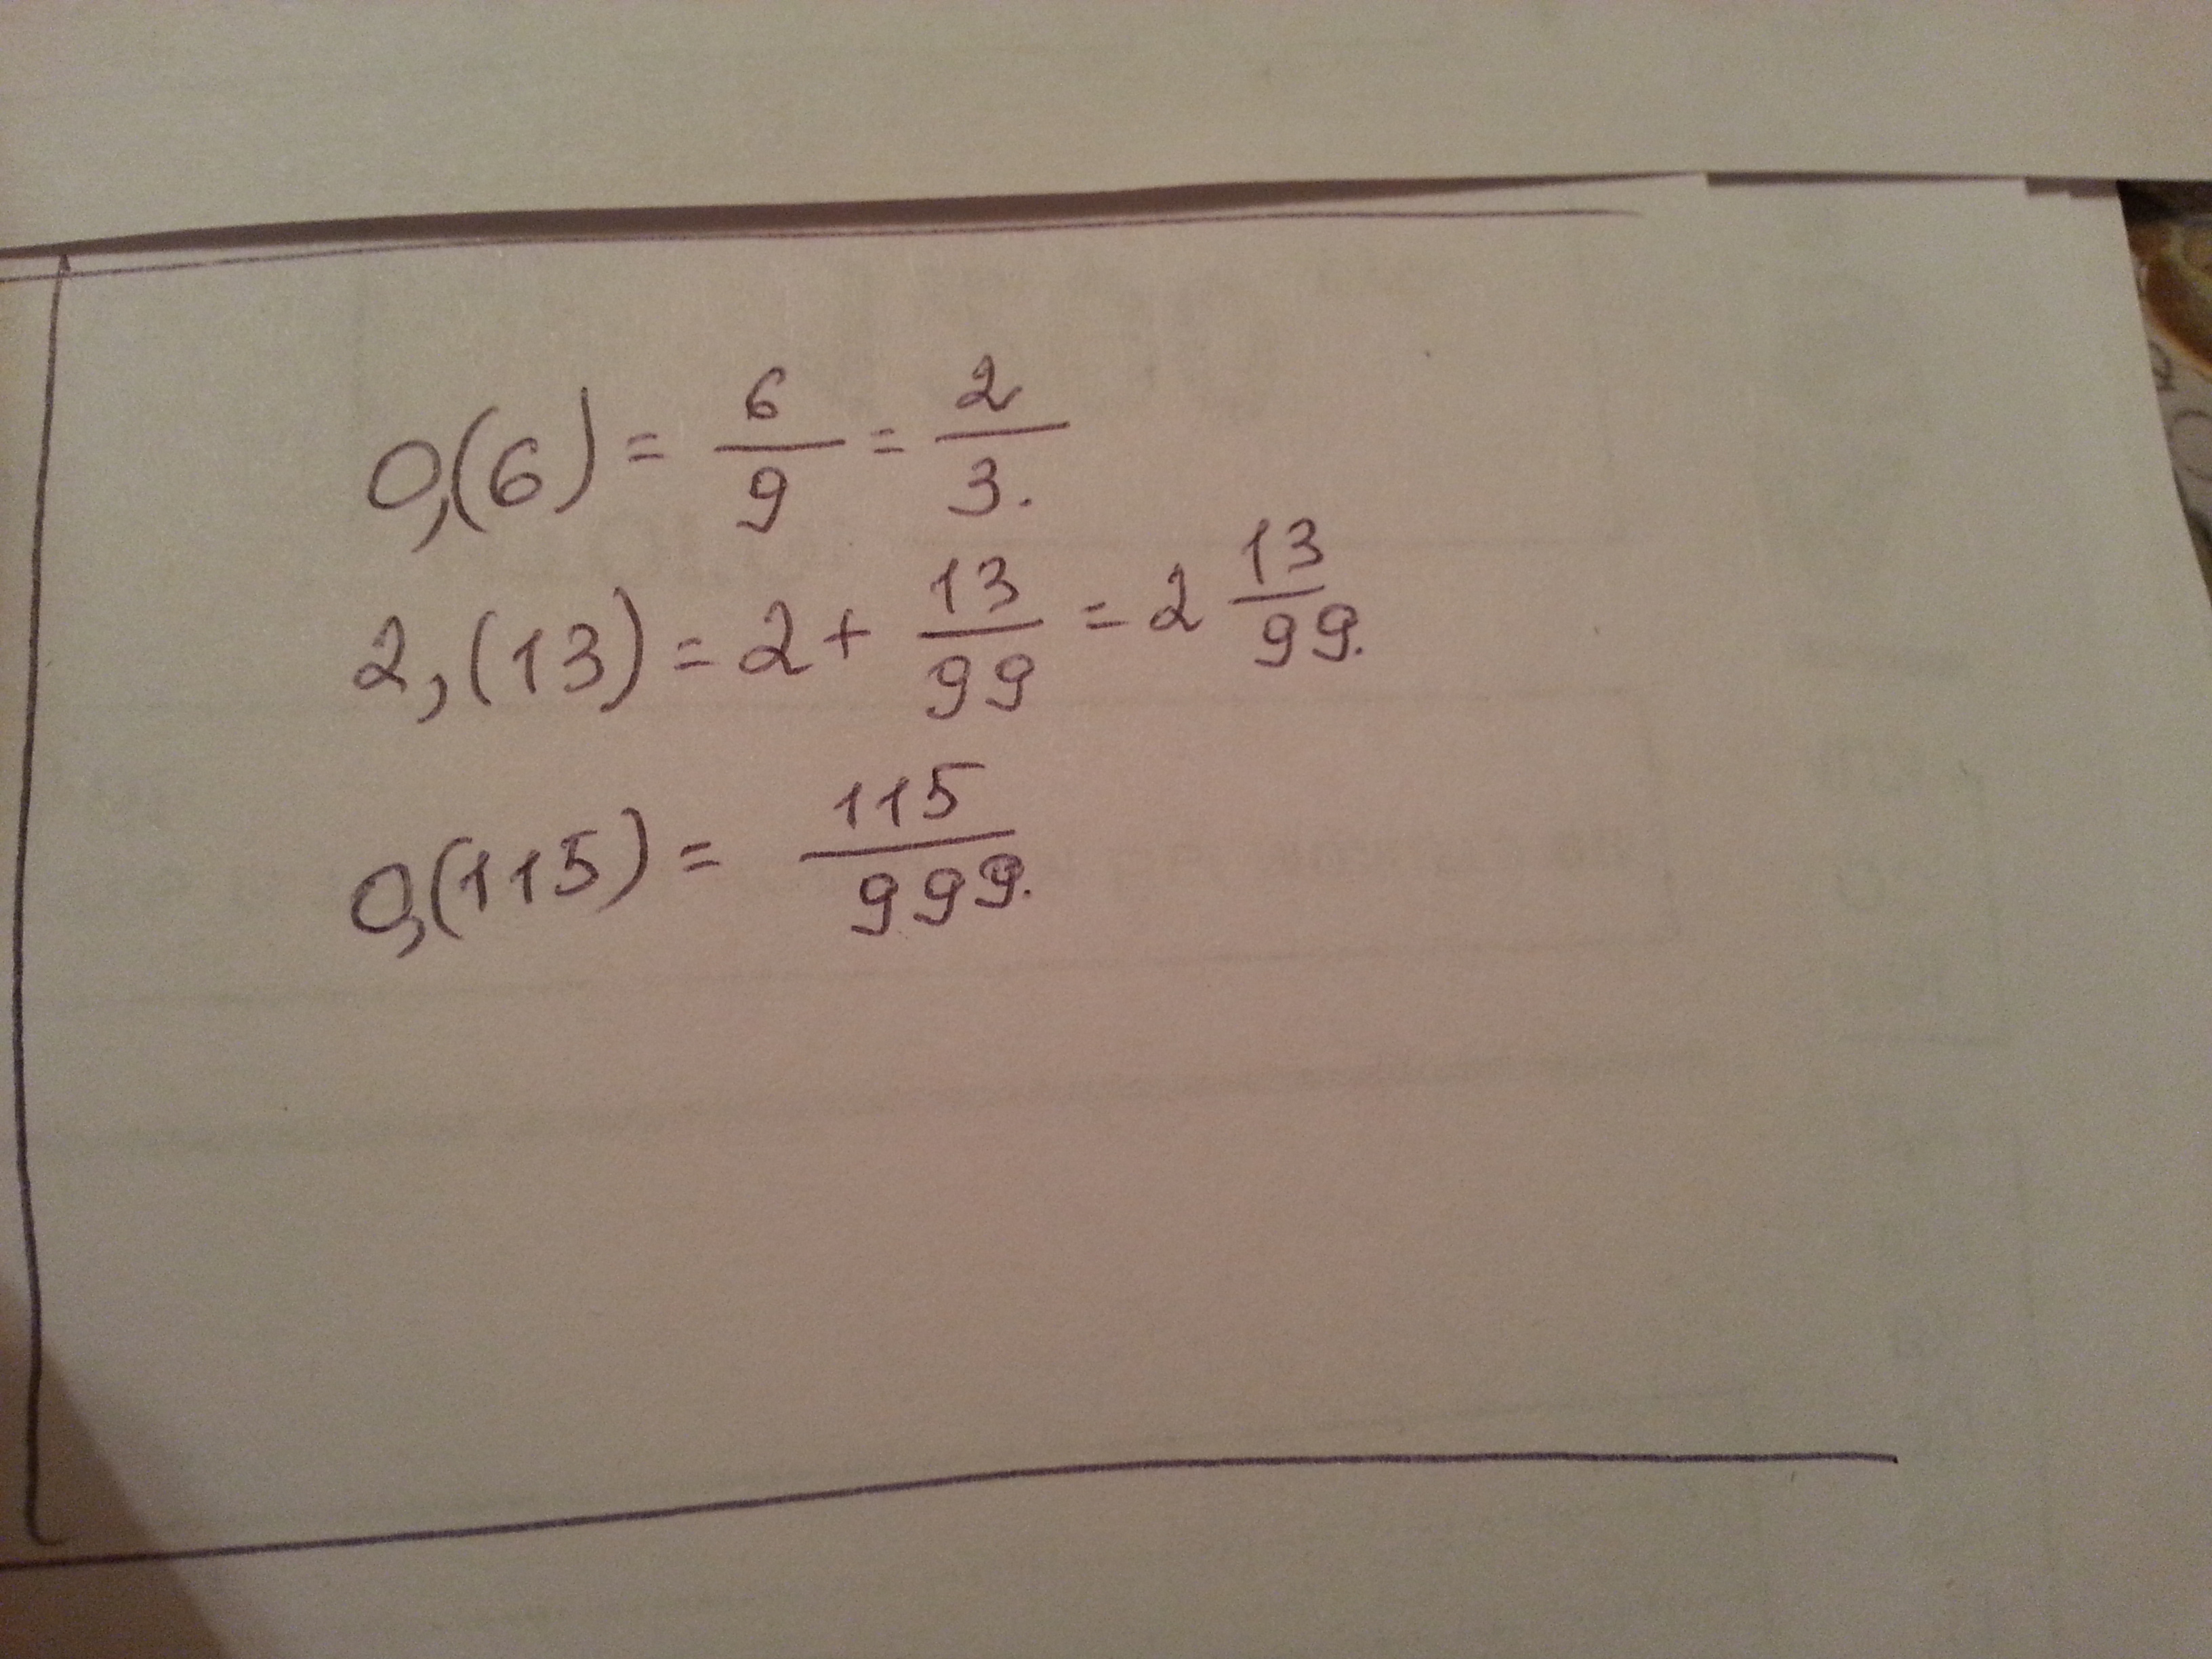 0,(6) = 6/9 = 2/3.
2,(13) = 2 + 13/99 = 2 13/99.
0,(115) = 115/999.